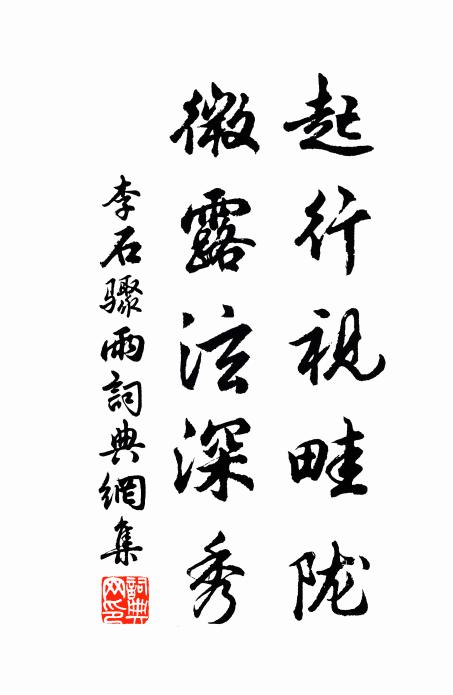 起行視畦陇
微露泫深秀
李石驟雨詞典網集
詞典
网印